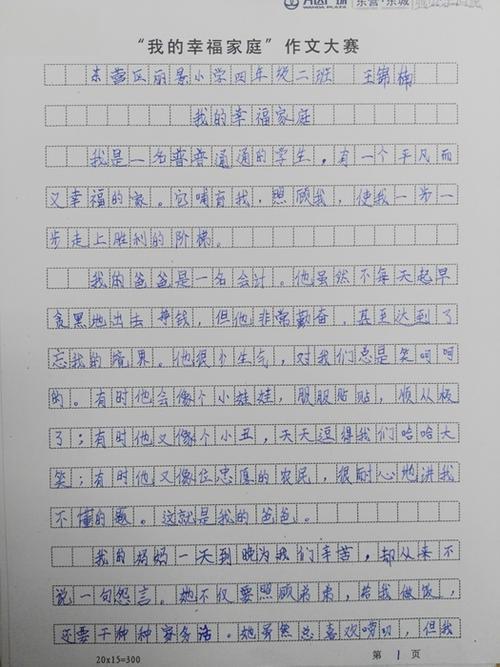 万达广场 东营·东城
“我的幸福家庭”作文大赛
东营区丽景小学四年级二班 王锦楠
我的幸福家庭
我是一名普普通通的学生，有一个平凡而
又幸福的家。它哺育我，照顾我，使我一步一
步走上胜利的阶梯。
我的爸爸是一名会计。他虽然不每天起早
贪黑地出去挣钱，但他非常勤奋，甚至达到了
忘我的境界。他很少生气，对我们总是笑呵呵
的。有时他会像个小娃娃，服服贴贴，顺从极
了；有时他又像个小丑，天天逗得我们哈哈大
笑；有时他又像位忠厚的农民，很耐心地讲我
不懂的题。这就是我的爸爸。
我的妈妈一天到晚为我们辛苦，却从来不
说一句怨言。她不仅要照顾弟弟，给我做饭，
还要干种种家务活。她虽然总喜欢唠叨，但我
20x15=300
第 1 页